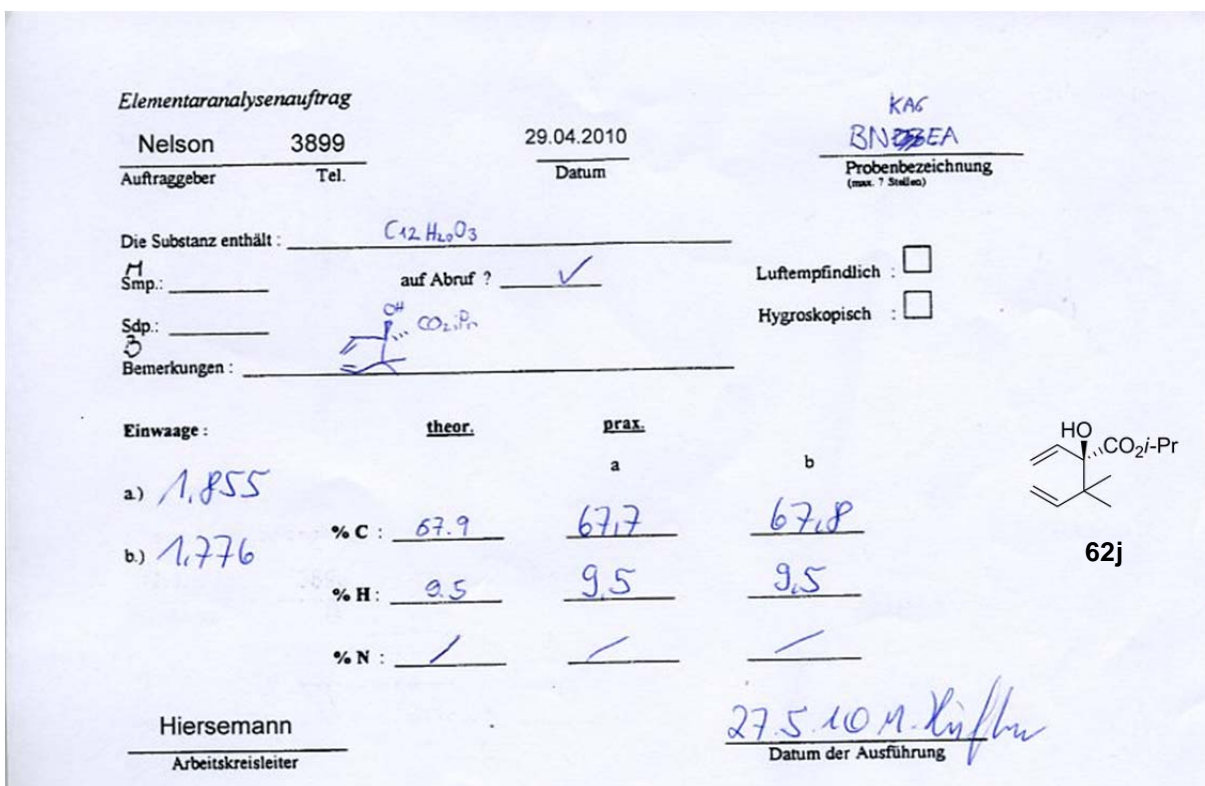 Elementaranalysenauftrag
Nelson 3899
Auftraggeber Tel.
29.04.2010
Datum
BN EA
Probenbezeichnung
(max. 7 Stellen)
Die Substanz enthält : C12H20O3
Smp.:
auf Abruf ? ✓
Luftempfindlich :
Sdp.:
Hygroskopisch :
OH
CO2iPr
Bemerkungen :
Einwaage : theor. prax.
a b
a.) 1,855
b.) 1,776
% C : 67.9 67,7 67,8
% H : 9.5 9,5 9,5
% N : / / /
HO
CO2i-Pr
62j
Hiersemann
Arbeitskreisleiter
27.5.10 M.
Datum der Ausführung